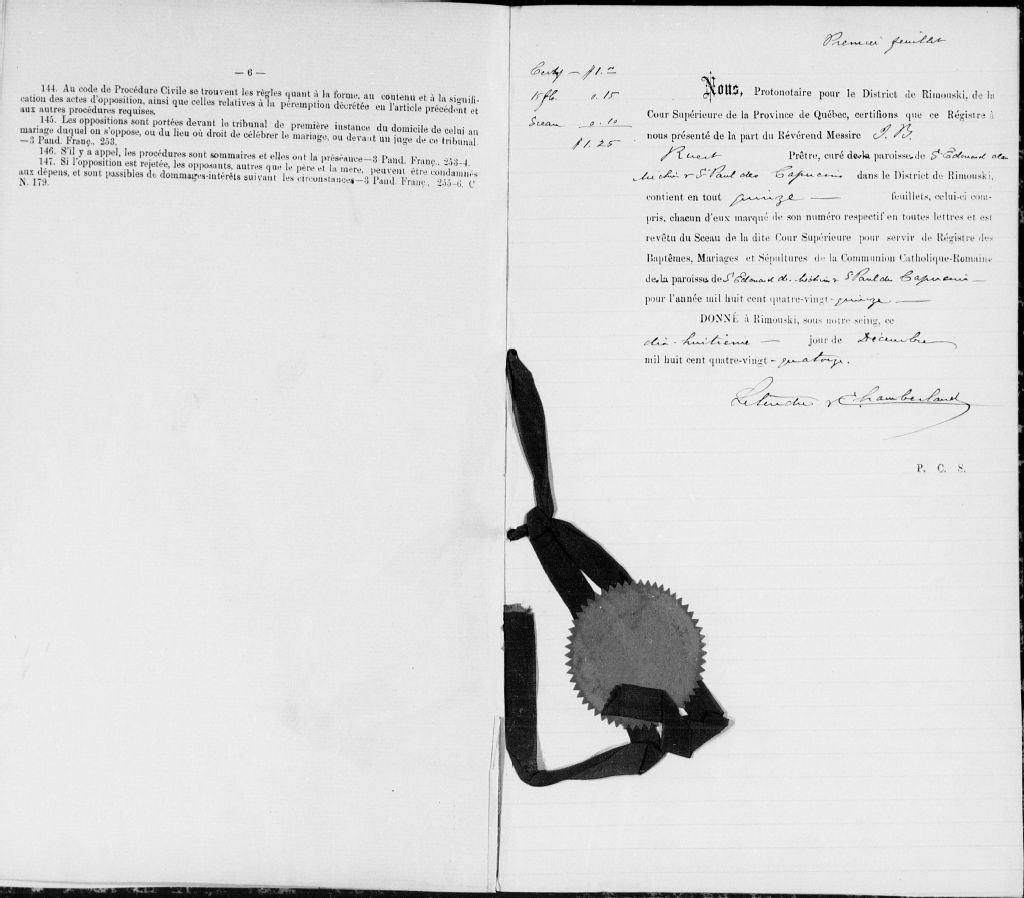 — 6 —
144. Au code de Procédure Civile se trouvent les règles quant à la forme, au contenu et à la signifi-
cation des actes d'opposition, ainsi que celles relatives à la péremption décrétée en l'article précédent et
aux autres procédures requises.
145. Les oppositions sont portées devant le tribunal de première instance du domicile de celui au
mariage duquel on s'oppose, ou du lieu où droit de célébrer le mariage, ou devant un juge de ce tribunal
—3 Pand. Franç., 253.
146. S'il y a appel, les procédures sont sommaires et elles ont la préséance—3 Pand. Franç., 253-4.
147. Si l'opposition est rejetée, les opposants, autres que le père et la mère, peuvent être condamnés
aux dépens, et sont passibles de dommages-intérêts suivant les circonstances—3 Pand. Franç., 255-6. C
N. 179.
Premier feuillet
— $1.
15 fl. 0.15
Sceau 0.10
$1.25
Nous, Protonotaire pour le District de Rimouski, de la
Cour Supérieure de la Province de Québec, certifions que ce Régistre à
nous présenté de la part du Révérend Messire J. B.
Ruest Prêtre, curé de la paroisses de St Edouard des
Méchins & St Paul des Capucins dans le District de Rimouski,
contient en tout quinze — feuillets, celui-ci com-
pris, chacun d'eux marqué de son numéro respectif en toutes lettres et est
revêtu du Sceau de la dite Cour Supérieure pour servir de Régistre des
Baptêmes, Mariages et Sépultures de la Communion Catholique-Romaine
de la paroisses de St Edouard des Méchins & St Paul des Capucins —
pour l'année mil huit cent quatre-vingt-quinze —
DONNÉ à Rimouski, sous notre seing, ce
dix-huitième — jour de Décembre
mil huit cent quatre-vingt-quatorze.
Letendre & Chamberland
P. C. S.